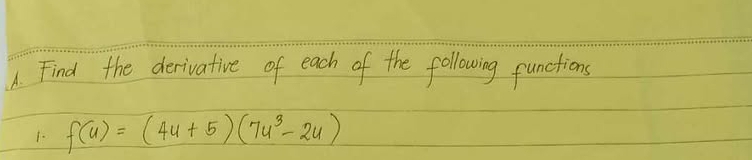 A. Find the derivative of each of the following functions
1. f(u) = (4u + 5)(7u³ - 2u)